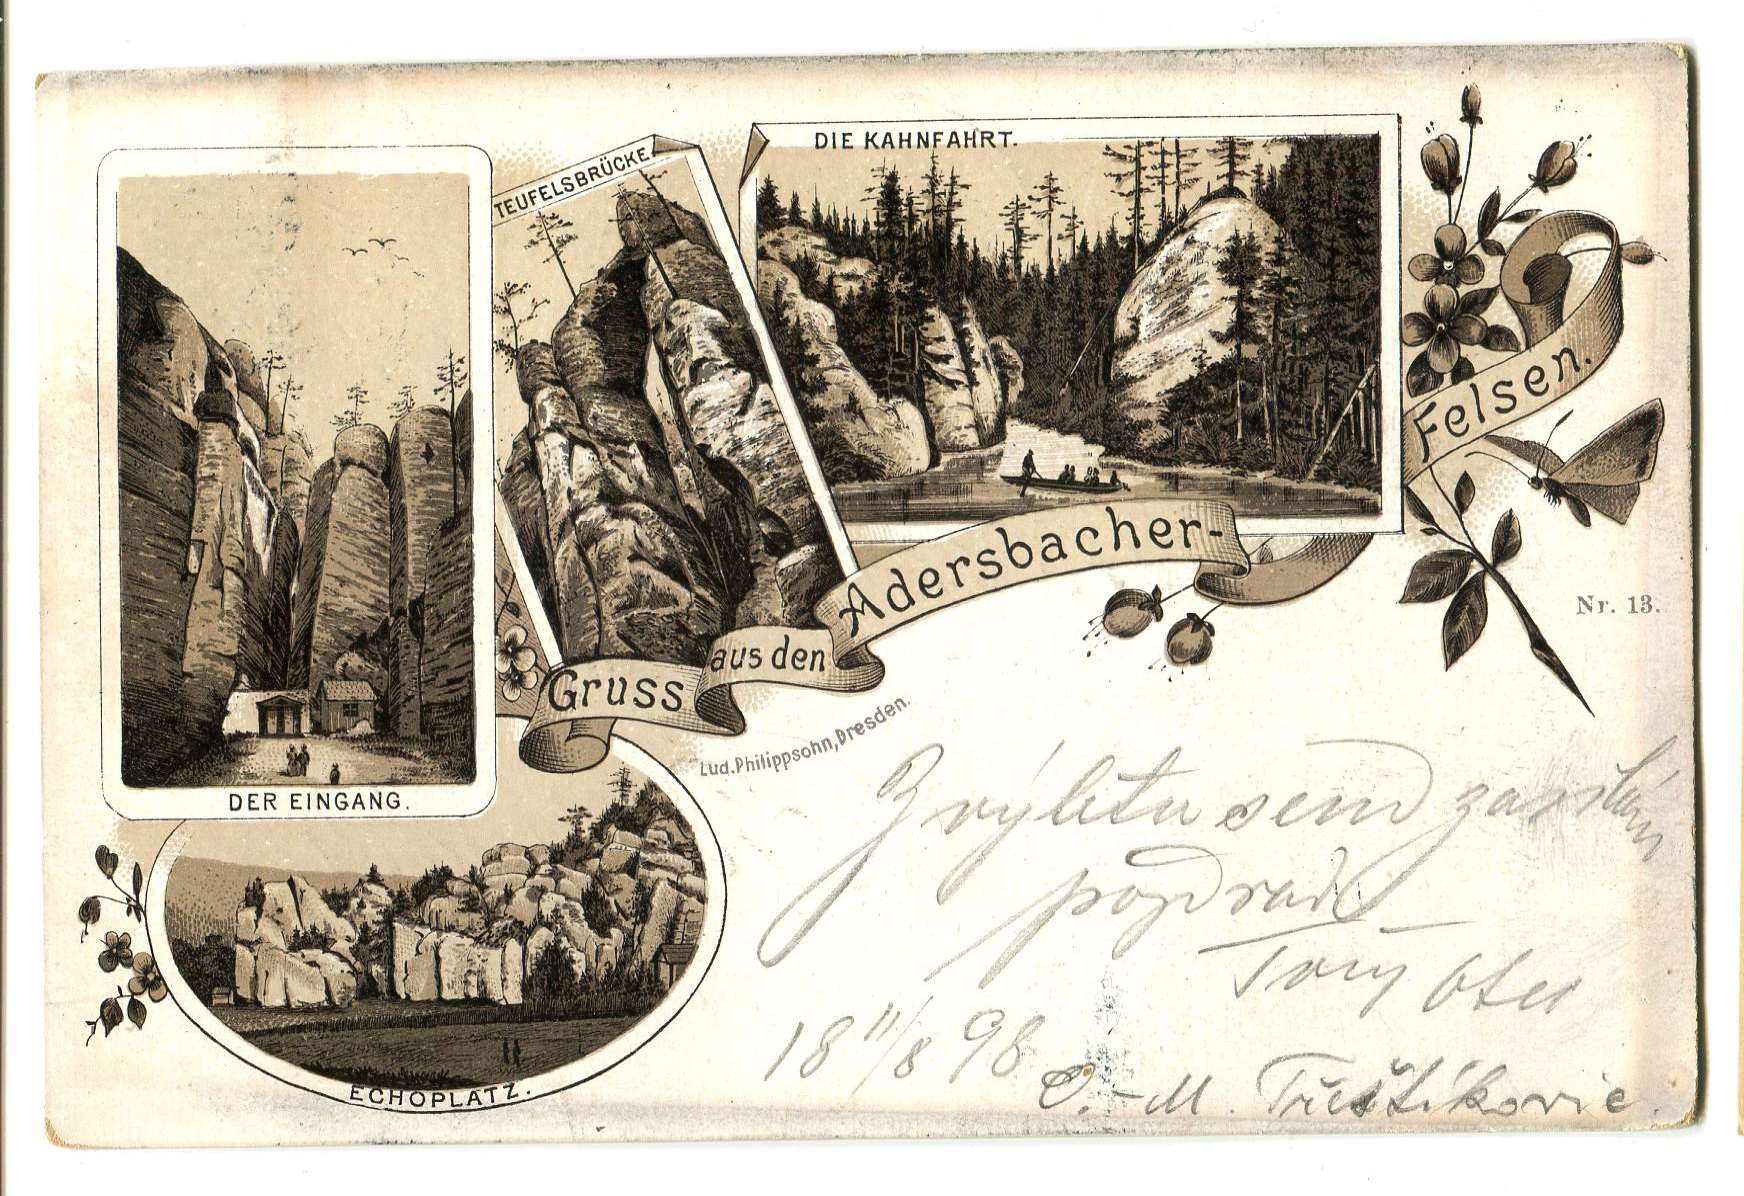 DER EINGANG.
TEUFELSBRÜCKE
DIE KAHNFAHRT.
Gruss aus den Adersbacher-Felsen.
Nr. 13.
Lud. Philippsohn, Dresden.
ECHOPLATZ.
Z výletu sem
pozdrav
Tvůj otec
18 11/8 98
O. - M. Třeštíkovic.